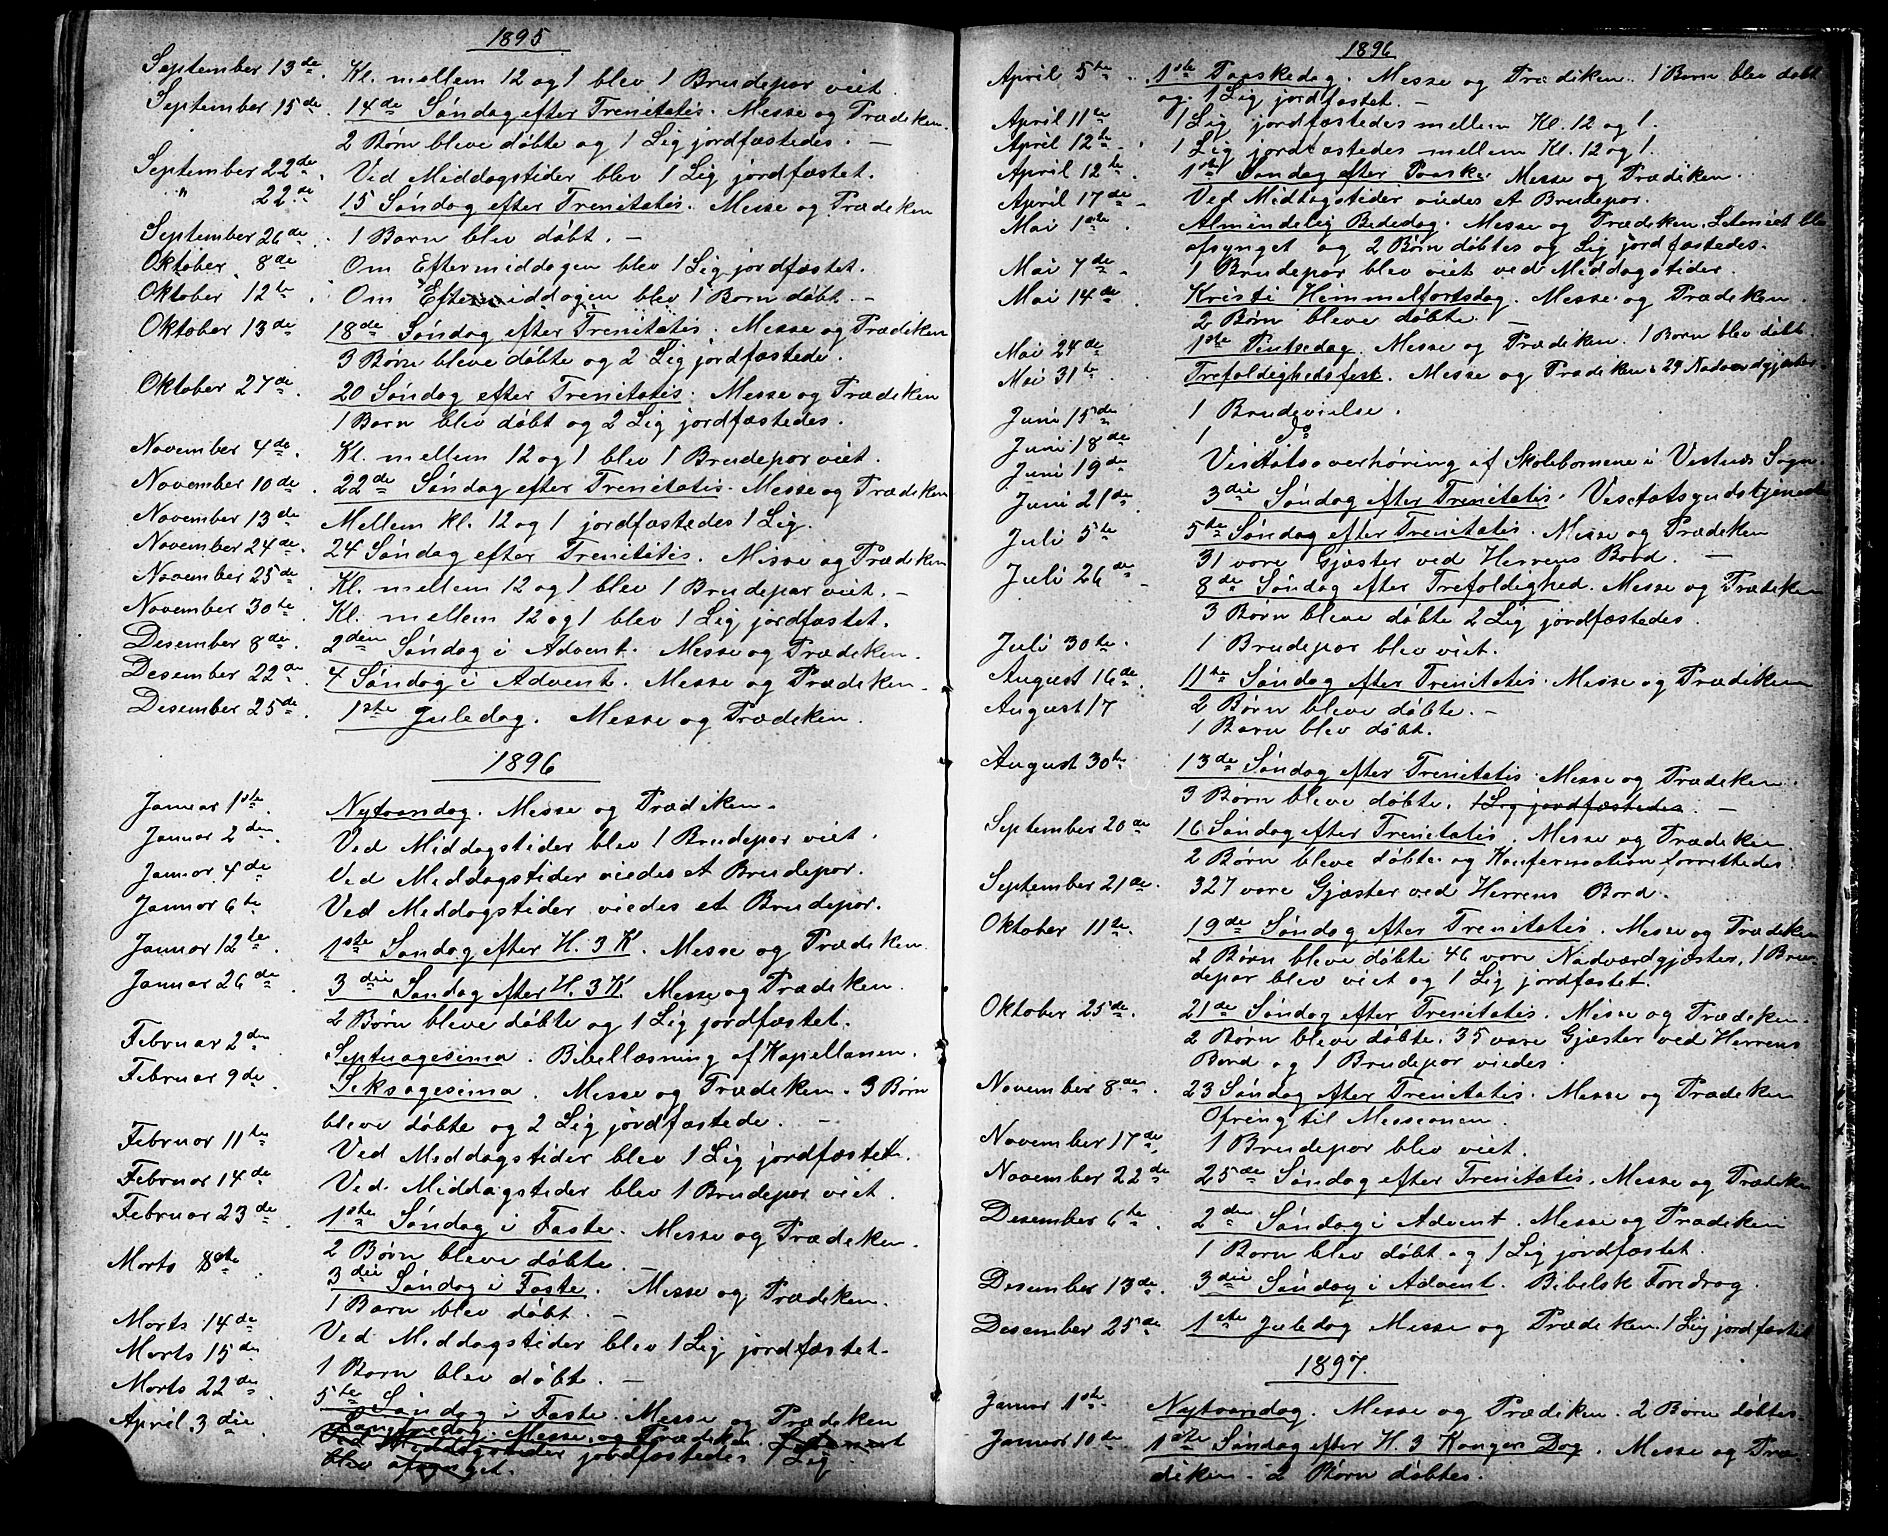 1895
September 13de. Kl. mellem 12 og 1 blev 1 Brudepar viet
September 15de. 14de Søndag efter Trenitatis. Messe og Prædiken.
2 Børn bleve døbte og 1 Lig jordfæstedes. —
September 22de. Ved Middagstider blev 1 Lig jordfæstet.
" 22de 15 Søndag efter Trenitatis. Messe og Prædiken
September 26de. 1 Barn blev døbt. —
Oktober 8de Om Eftermiddagen blev 1 Lig jordfæstet.
Oktober 12te. Om Eftermiddagen blev 1 Barn døbt. —
Oktober 13de 18de Søndag efter Trenitatis. Messe og Prædiken
3 Børn bleve døbte og 2 Lig jordfæstede.
Oktober 27de. 20 Søndag efter Trenitatis. Messe og Prædiken
1 Barn blev døbt og 2 Lig jordfæstedes.
November 4de. Kl. mellem 12 og 1 blev 1 Brudepar viet.
November 10de. 22de Søndag efter Trenitatis. Messe og Prædiken
November 13de Mellem kl. 12 og 1 jordfæstedes 1 Lig.
November 24de. 24 Søndag efter Trenititis. Messe og Prædiken
November 25de. Kl. mellem 12 og 1 blev 1 Brudepar viet. —
November 30te. Kl. mellem 12 og 1 blev 1 Lig jordfæstet.
Desember 8de. 2den Søndag i Advent. Messe og Prædiken.
Desember 22de. 4 Søndag i Advent. Messe og Prædiken.
Desember 25de. 1ste Juledag. Messe og Prædiken.
1896
Januar 1ste. Nytaarsdag. Messe og Prædiken.
Januar 2den. Ved Middagstider blev 1 Brudepar viet.
Januar 4de Ved Middagstider viedes et Brudepar.
Januar 6te Ved Middagstider viedes et Brudepar.
Januar 12te. 1ste Søndag efter H. 3 K. Messe og Prædiken.
Januar 26de. 3die Søndag efter H. 3 K. Messe og Prædiken.
2 Børn bleve døbte og 1 Lig jordfæstet.
Februar 2den Septuagesima. Bibellæsning af Kapellanen.
Februar 9de. Seksagesima. Messe og Prædiken. 3 Børn
bleve døbte og 2 Lig jordfæstede. —
Februar 11te Ved Middagstider blev 1 Lig jordfæstet.
Februar 14de. Ved Middagstider blev 1 Brudepar viet.
Februar 23de. 1ste Søndag i Faste. Messe og Prædiken.
2 Børn bleve døbte.
Marts 8de. 3die Søndag i Faste. Messe og Prædiken.
1 Barn blev døbt. —
Marts 14de Ved Middagstider blev 1 Lig jordfæstet.
Marts 15de 1 Barn blev døbt. —
Marts 22de. 5te Søndag i Faste. Messe og Prædiken
April 3die Langfredag. Messe og Prædiken
Ved Middagstider jordfæstedes 1 Lig
blev afsynget.
1896
April 5te. 1ste Paaskedag. Messe og Prædiken. 1 Barn blev døbt
og 1 Lig jordfæstet. —
April 11te 1 Lig jordfæstedes mellem Kl. 12 og 1.
April 12te. 1 Lig jordfæstedes mellem Kl. 12 og 1.
April 12te. 1ste Søndag efter Paaske. Messe og Prædiken.
April 17de. Ved Middagstider viedes et Brudepar.
Mai 1ste. Almindelig Bededag. Messe og Prædiken. Letaniet blev
afsynget og 2 Børn døbtes og Lig jordfæstedes.
Mai 7de 1 Brudepar blev viet ved Middagstider.
Mai 14de. Kristi Himmelfartsdag. Messe og Prædiken.
2 Børn bleve døbte. —
Mai 24de 1ste Pintsedag. Messe og Prædiken. 1 Barn blev døbt.
Mai 31te. Trefoldighedsfest. Messe og Prædiken. 29 Nadverdgjæster
Juni 15de 1 Brudevielse.
Juni 18de 1 do
Juni 19de Visitatsoverhøring af Skolebørnene i Sogn.
Juni 21de. 3die Søndag efter Trenitatis. Visitatsgudstjeneste
Juli 5te. 5te Søndag efter Trenitatis. Messe og Prædiken
31 vare Gjæster ved Herrens Bord. —
Juli 26de 8de Søndag efter Trefoldighed. Messe og Prædiken
3 Børn bleve døbte 2 Lig jordfæstedes.
Juli 30te. 1 Brudepar blev viet.
August 16de. 11te Søndag efter Trenitatis. Messe og Prædiken
2 Børn bleve døbte. —
August 17 1 Barn blev døbt.
August 30te 13de Søndag efter Trenitatis. Messe og Prædiken.
3 Børn bleve døbte. 1 Lig jordfæstedes. —
September 20de 16 Søndag efter Trenitatis. Messe og Prædiken.
2 Børn bleve døbte og Konfermation forrettedes
September 21de. 327 vare Gjæster ved Herrens Bord.
Oktober 11te. 19de Søndag efter Trenitatis. Messe og Prædiken
2 Børn bleve døbte 46 vare Nadværdgjæster, 1 Bru-
depar blev viet og 1 Lig jordfæstet.
Oktober 25de. 21de Søndag efter Trenitatis. Messe og Prædiken.
2 Børn bleve døbte. 35 vare Gjæster ved Herrens
Bord og 1 Brudepar viedes.
November 8de. 23 Søndag efter Trenitatis. Messe og Prædiken
Ofring til Messionen.
November 17de 1 Brudepar blev viet.
November 22de 25de Søndag efter Trenitatis. Messe og Prædiken
Desember 6te. 2den Søndag i Advent. Messe og Prædiken
1 Barn blev døbt og 1 Lig jordfæstet.
Desember 13de. 3die Søndag i Advent. Bibelsk Foredrag.
Desember 25de 1ste Juledag Messe og Prædiken. 1 Lig jordfæstet
1897.
Januar 1ste. Nytaarsdag. Messe og Prædiken. 2 Børn døbtes.
Januar 10te. 1ste Søndag efter H. 3 Konger Dag. Messe og Præ-
diken. 2 Børn døbtes.